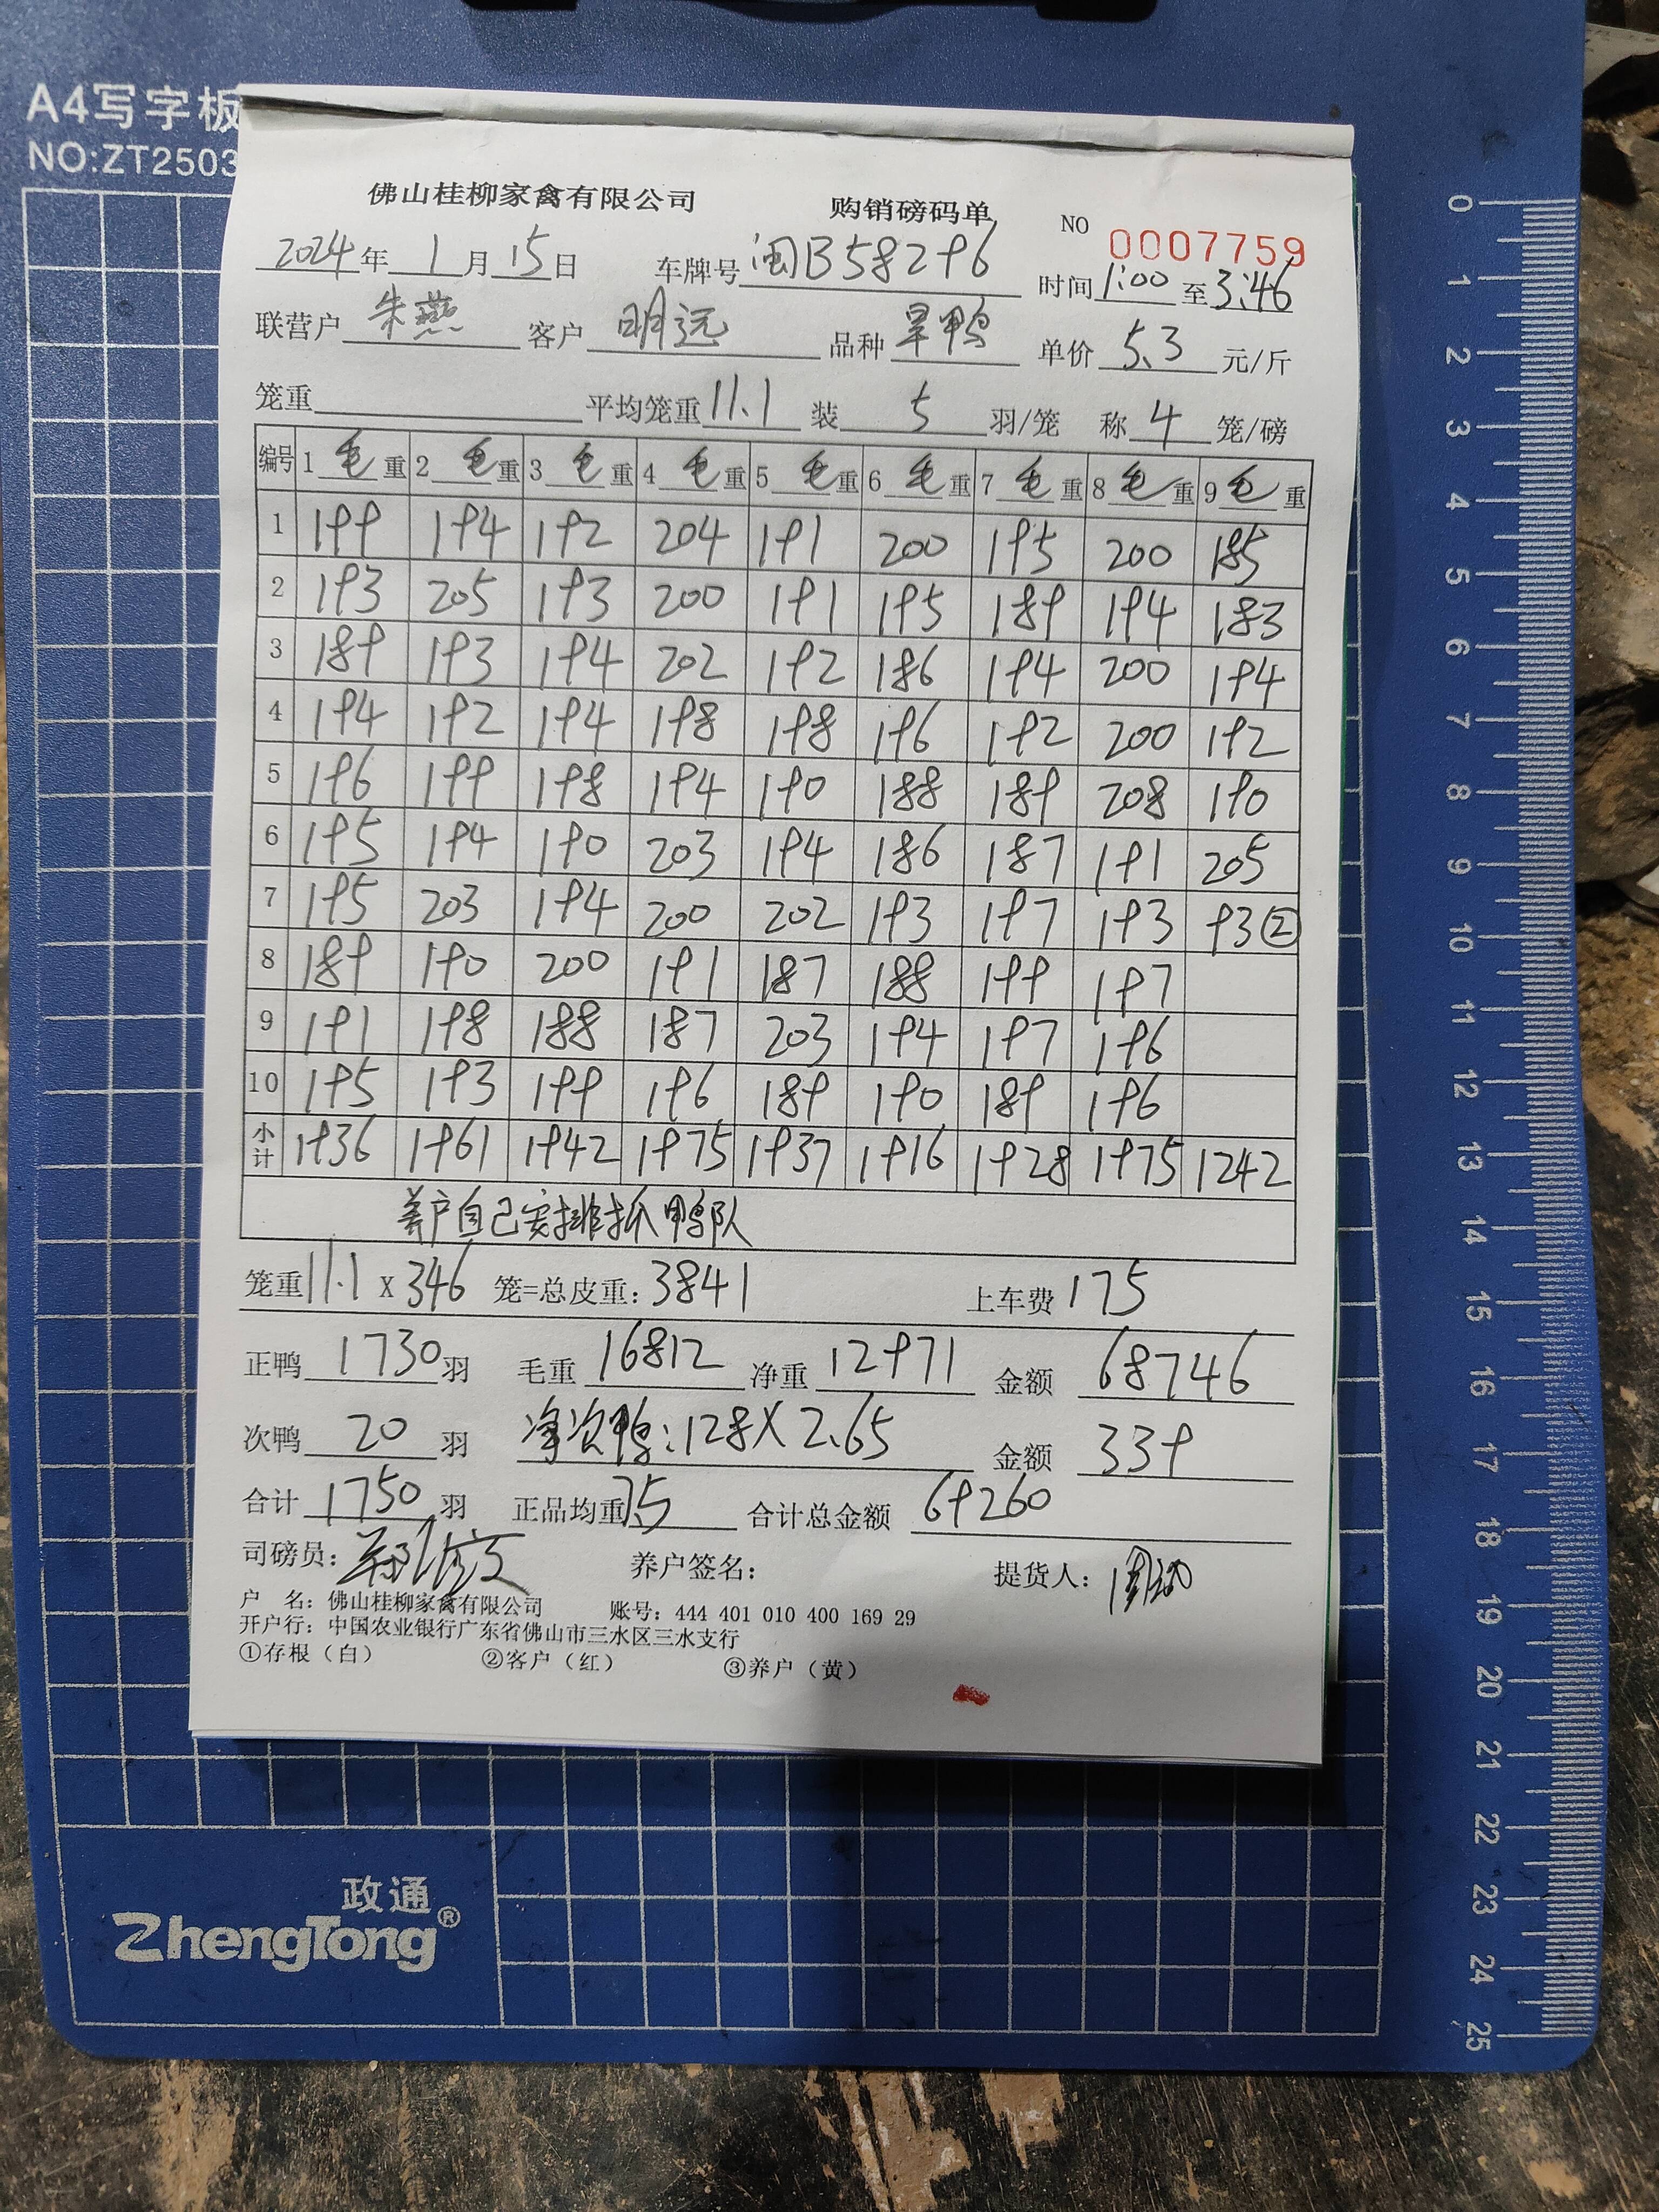 A4写字板
NO:ZT2503
佛山桂柳家禽有限公司 购销磅码单 NO 0007759
2024年1月15日 车牌号闽B58296 时间1:00至3:46
联营户 朱燕 客户 明远 品种 旱鸭 单价 5.3 元/斤
笼重 平均笼重11.1 装 5 羽/笼 称 4 笼/磅
编号 1 毛重 2 毛重 3 毛重 4 毛重 5 毛重 6 毛重 7 毛重 8 毛重 9 毛重
1 199 194 192 204 191 200 195 200 185
2 193 205 193 200 191 195 189 194 183
3 189 193 194 202 192 186 194 200 194
4 194 192 194 198 198 196 192 200 192
5 196 199 198 194 190 188 189 208 190
6 195 194 190 203 194 186 187 191 205
7 195 203 194 200 202 193 197 193 93②
8 189 190 200 191 187 188 199 197
9 191 198 188 187 203 194 197 196
10 195 193 199 196 189 190 189 196
小计 1936 1961 1942 1975 1937 1916 1928 1975 1242
养户自己安排抓鸭队
笼重11.1 X 346 笼=总皮重:3841 上车费 175
正鸭 1730 羽 毛重 16812 净重 12971 金额 68746
次鸭 20 羽 净次鸭:128X2.65 金额 339
合计 1750 羽 正品均重7.5 合计总金额 69260
司磅员: 养户签名: 提货人:
户 名:佛山桂柳家禽有限公司 账号:444 401 010 400 169 29
开户行:中国农业银行广东省佛山市三水区三水支行
①存根(白) ②客户(红) ③养户(黄)
政通
ZhengTong®
0
1
2
3
4
5
6
7
8
9
10
11
12
13
14
15
16
17
18
19
20
21
22
23
24
25